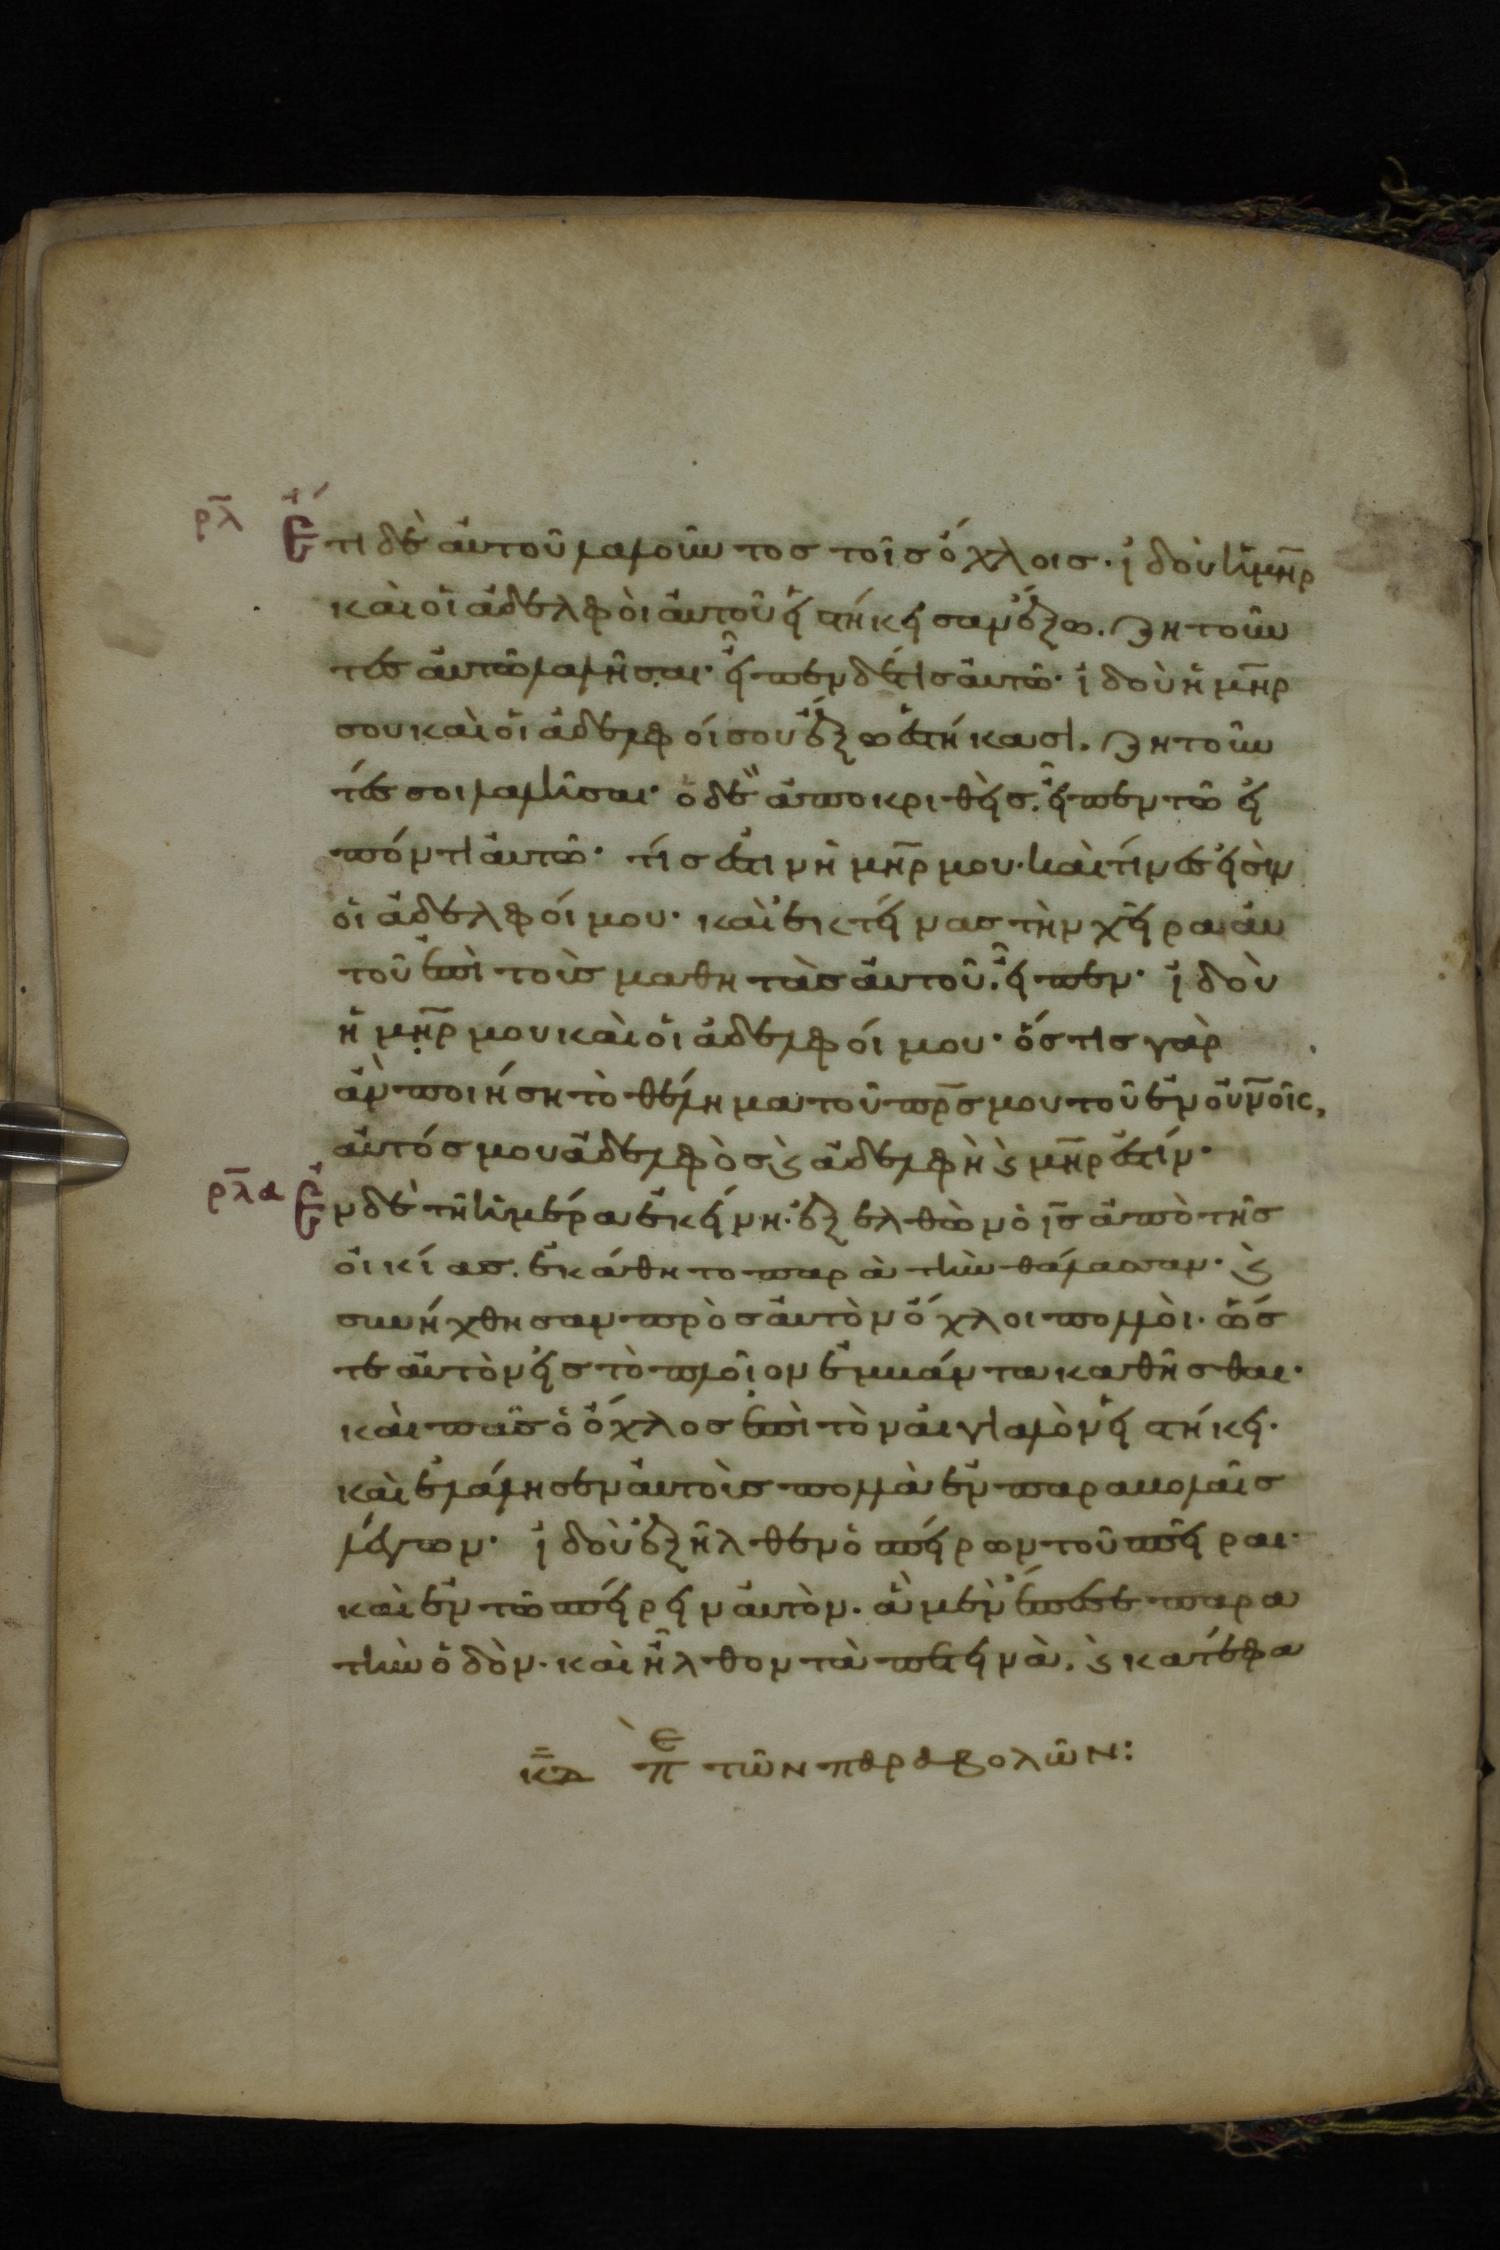 ρλ Ἔτι δὲ αὐτοῦ λαλοῦντοσ τοῖσ ὄχλοισ· ἰδοὺ ἡ μηρ
καὶ οἱ ἀδελφὸι αὐτοῦ εἱστήκεισαν ἔξω. ζητοῦν
τέσ αὐτῶ λαλῆσαι· εἶπεν δέ τισ αὐτῶ· ἰδοὺ ἡ μηρ
σου καὶ οἱ ἀδελφοί σου ἔξω ἑστήκασι. ζητοῦν
τέσ σοι λαλῆσαι· ὁ δὲ ἀποκριθεὶσ. εἶπεν τῶ εἰ
πόντι αὐτῶ· τίσ ἐστιν ἡ μηρ μου· καὶ τίνεσ εἰσὶν
οἱ ἀδελφοί μου· καὶ ἐκτείνασ τὴν χεῖρα αὐ
τοῦ ἐπὶ τοὺσ μαθητὰσ αὐτοῦ. εἶπεν· ἰδοὺ
ἡ μηρ μου καὶ οἱ ἀδελφοί μου· ὅστισ γὰρ
ἂν ποιήση τὸ θέλημα τοῦ πρσ μου τοῦ ἐν οὐνοῖς,
αὐτόσ μου ἀδελφὸσ ϗ ἀδελφὴ ϗ μηρ ἐστίν·
ρλα Ἐν δὲ τῆ ἡμέρα ἐκείνη· ἐξελθὼν ὁ ισ ἀπὸ τῆσ
οἰκίασ. ἐκάθητο παρὰ τὴν θάλασσαν· ϗ
συνήχθησαν πρὸσ αὐτὸν ὄχλοι πολλὸι. ὥσ
τε αὐτὸν εἰσ τὸ πλοῖον ἐμβάντα καθῆσθαι·
καὶ πᾶσ ὁ ὄχλοσ ἐπὶ τὸν αἰγιαλὸν εἱστήκει.
καὶ ἐλάλησεν αὐτοῖσ πολλὰ ἐν παραβολαῖσ
λέγων· ἰδοὺ ἐξῆλθεν ὁ σπείρων τοῦ σπεῖραι·
καὶ ἐν τῶ σπείρειν αὐτὸν. ἃ μὲν ἔπεσε παρα
τὴν ὁδὸν. καὶ ἦλθον τὰ πετεινὰ. ϗ κατέφα
κδ πε τῶν παραβολῶν: